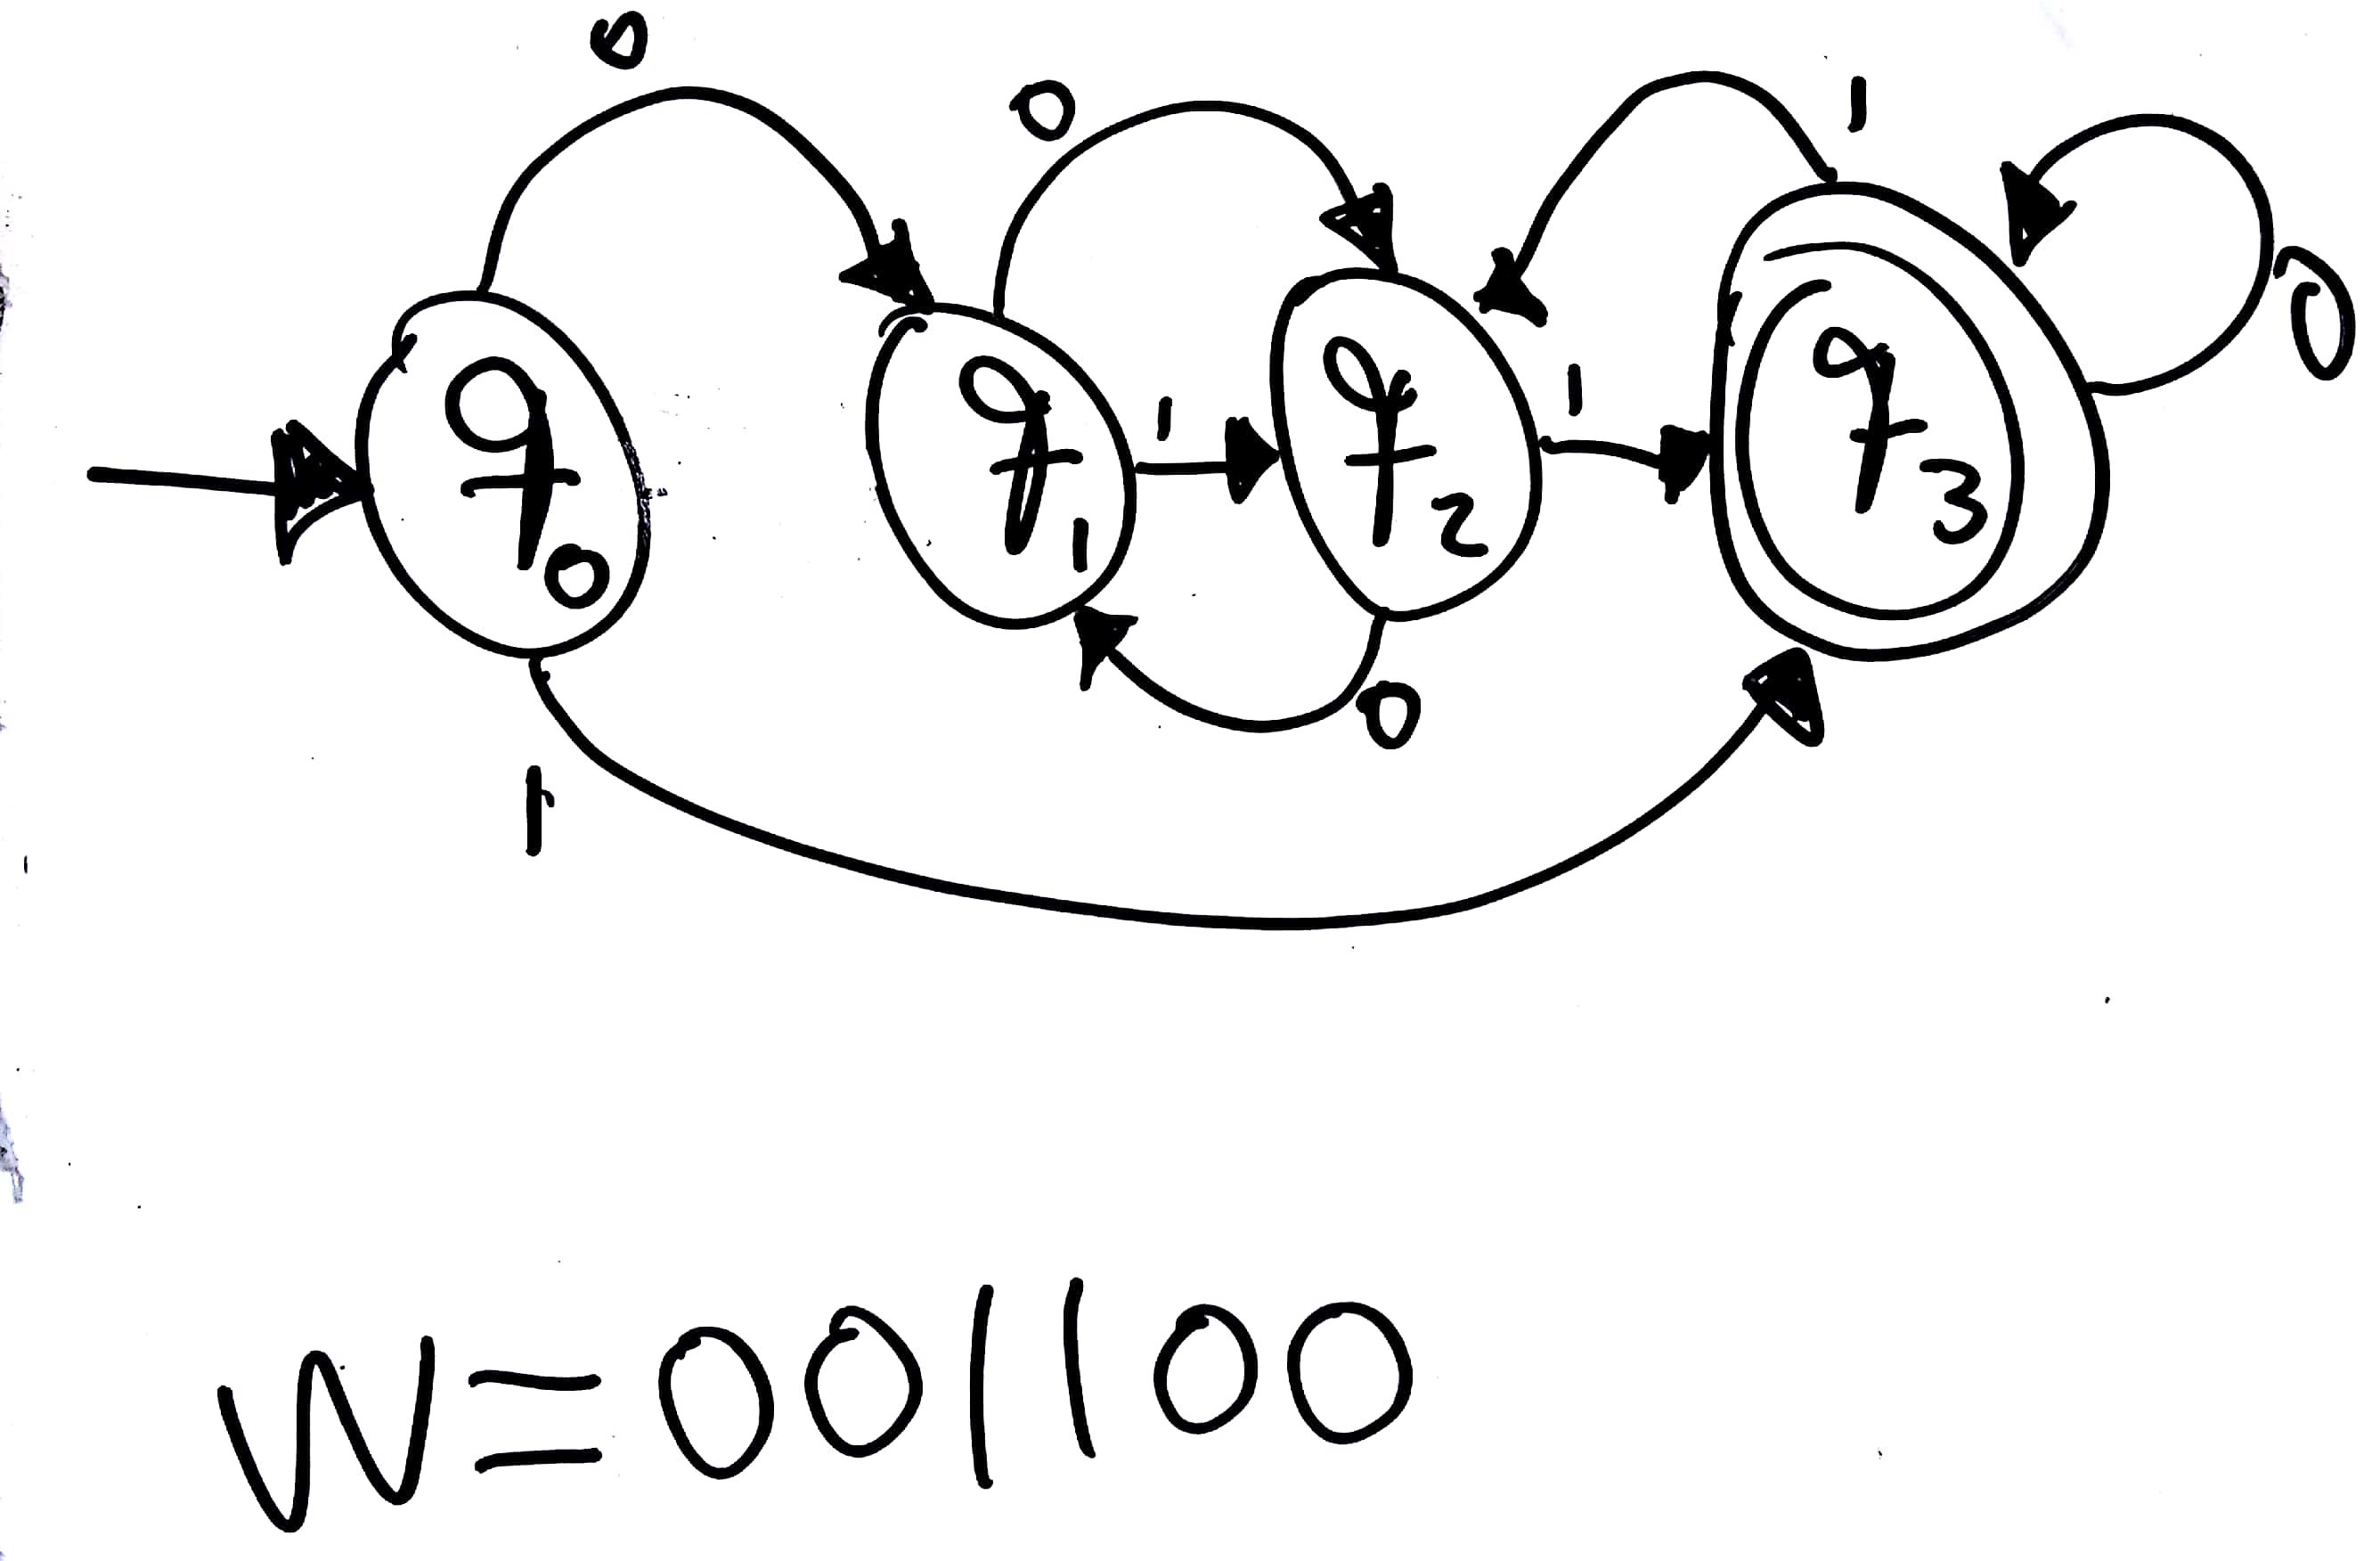 0
0
1
0
q0
q1
1
q2
1
q3
0
1
W=001100